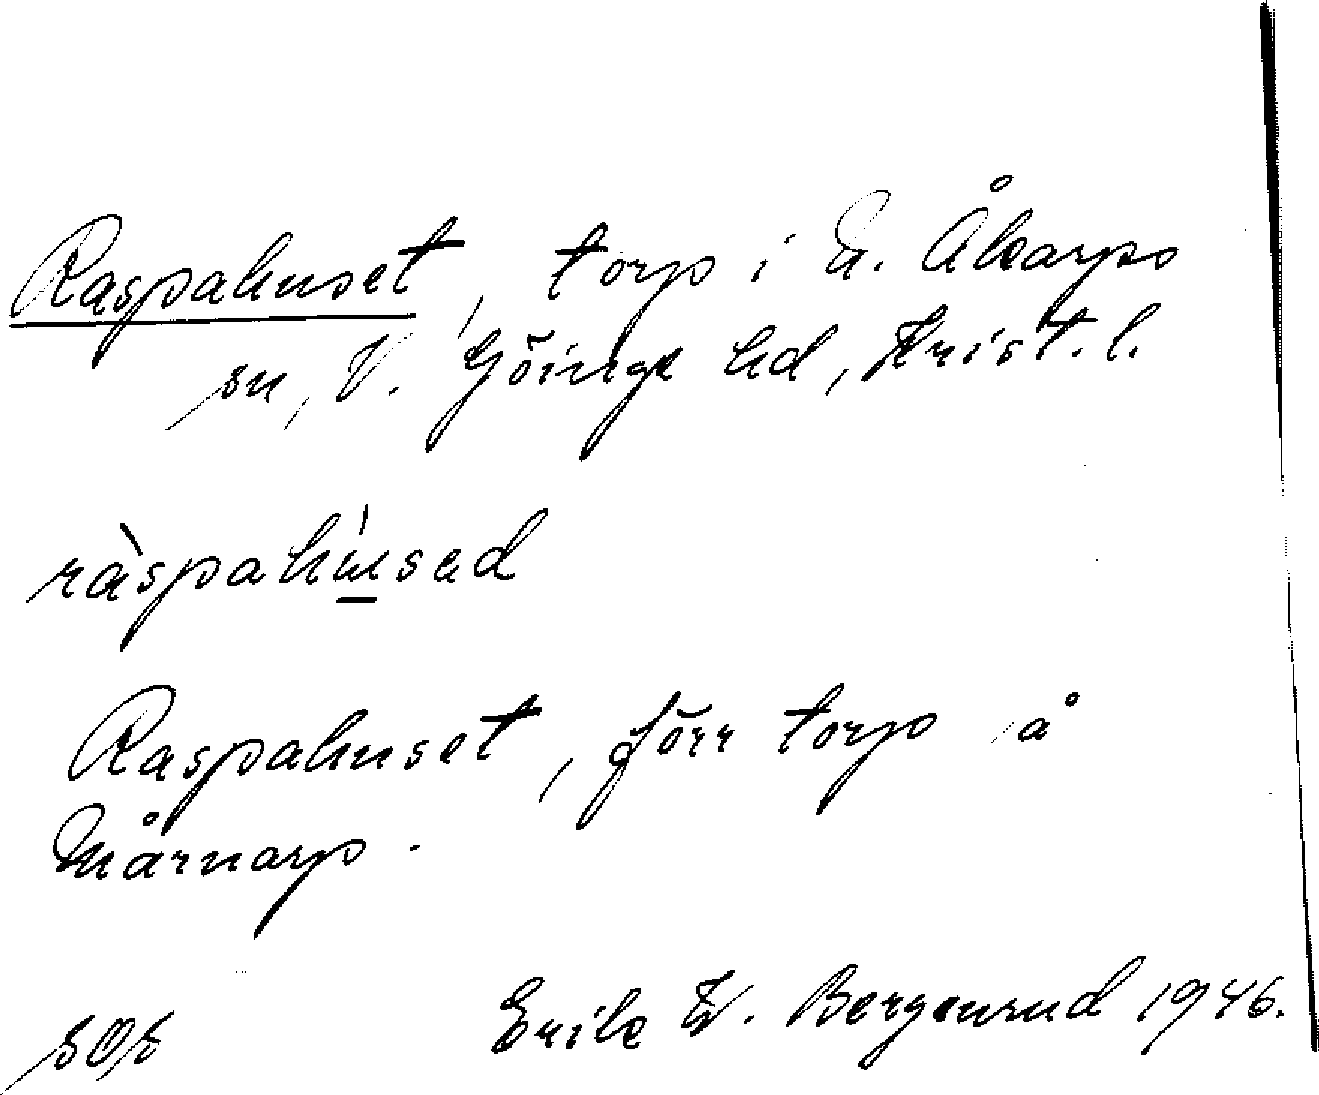 Raspahuset, torp i N. Åkarps
sn, V. Göinge hd, Krist. l.
ràspahúsed
Raspahuset, förr torp å
Mårnarp.
Erik W. Bergenrud 1946.